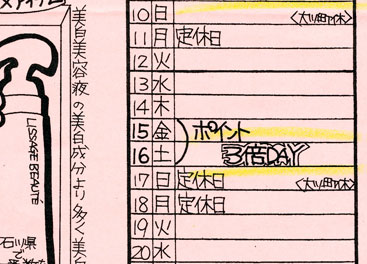 美白美容液の美白成分より多く美白
LISSAGE BEAUTÉ
石川県
で
10 日 〈大ツ田カ休〉
11 月 定休日
12 火
13 水
14 木
15 金 ポイント
16 土 3倍DAY
17 日 定休日 〈大ツ田カ休〉
18 月 定休日
19 火
20 水